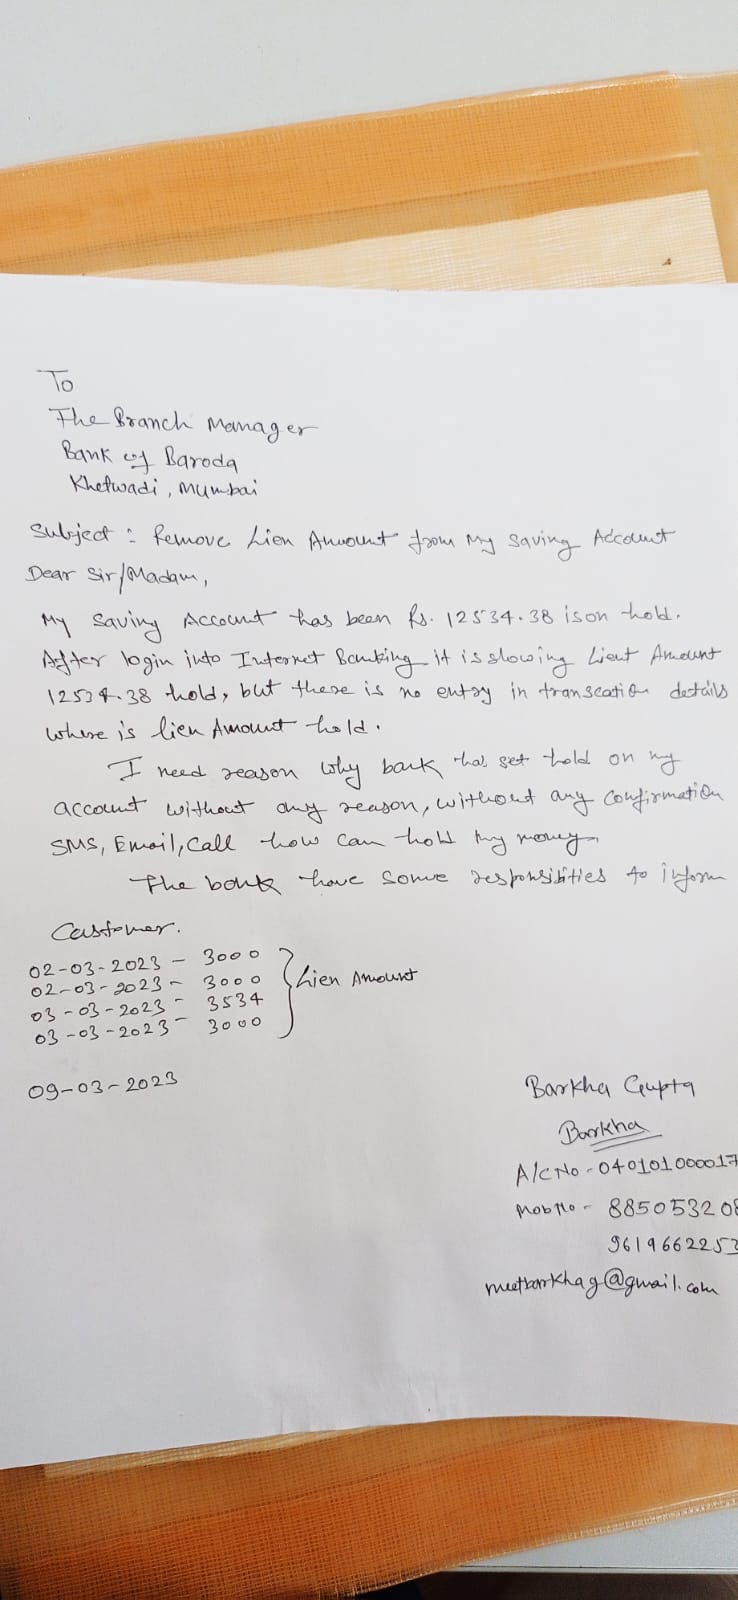 To
The Branch Manager
Bank of Baroda
Khetwadi, Mumbai
Subject : Remove Lien Amount from My Saving Account
Dear Sir/Madam,
My Saving Account has been Rs. 12534.38 is on hold.
After login into Internet Banking it is showing Lient Amount
12534.38 hold, but there is no entry in transcation details
where is lien Amount hold.
I need reason why bank has set hold on my
account without any reason, without any confirmation
SMS, Email, Call how can hold my money.
The bank have some responsibities to inform
Customer.
02-03-2023 - 3000
02-03-2023 - 3000
03-03-2023 - 3534
03-03-2023 - 3000
Lien Amount
09-03-2023
Barkha Gupta
Barkha
A/C No - 040101000017
Mob No - 885053208
9619662253
meetbarkhag@gmail.com